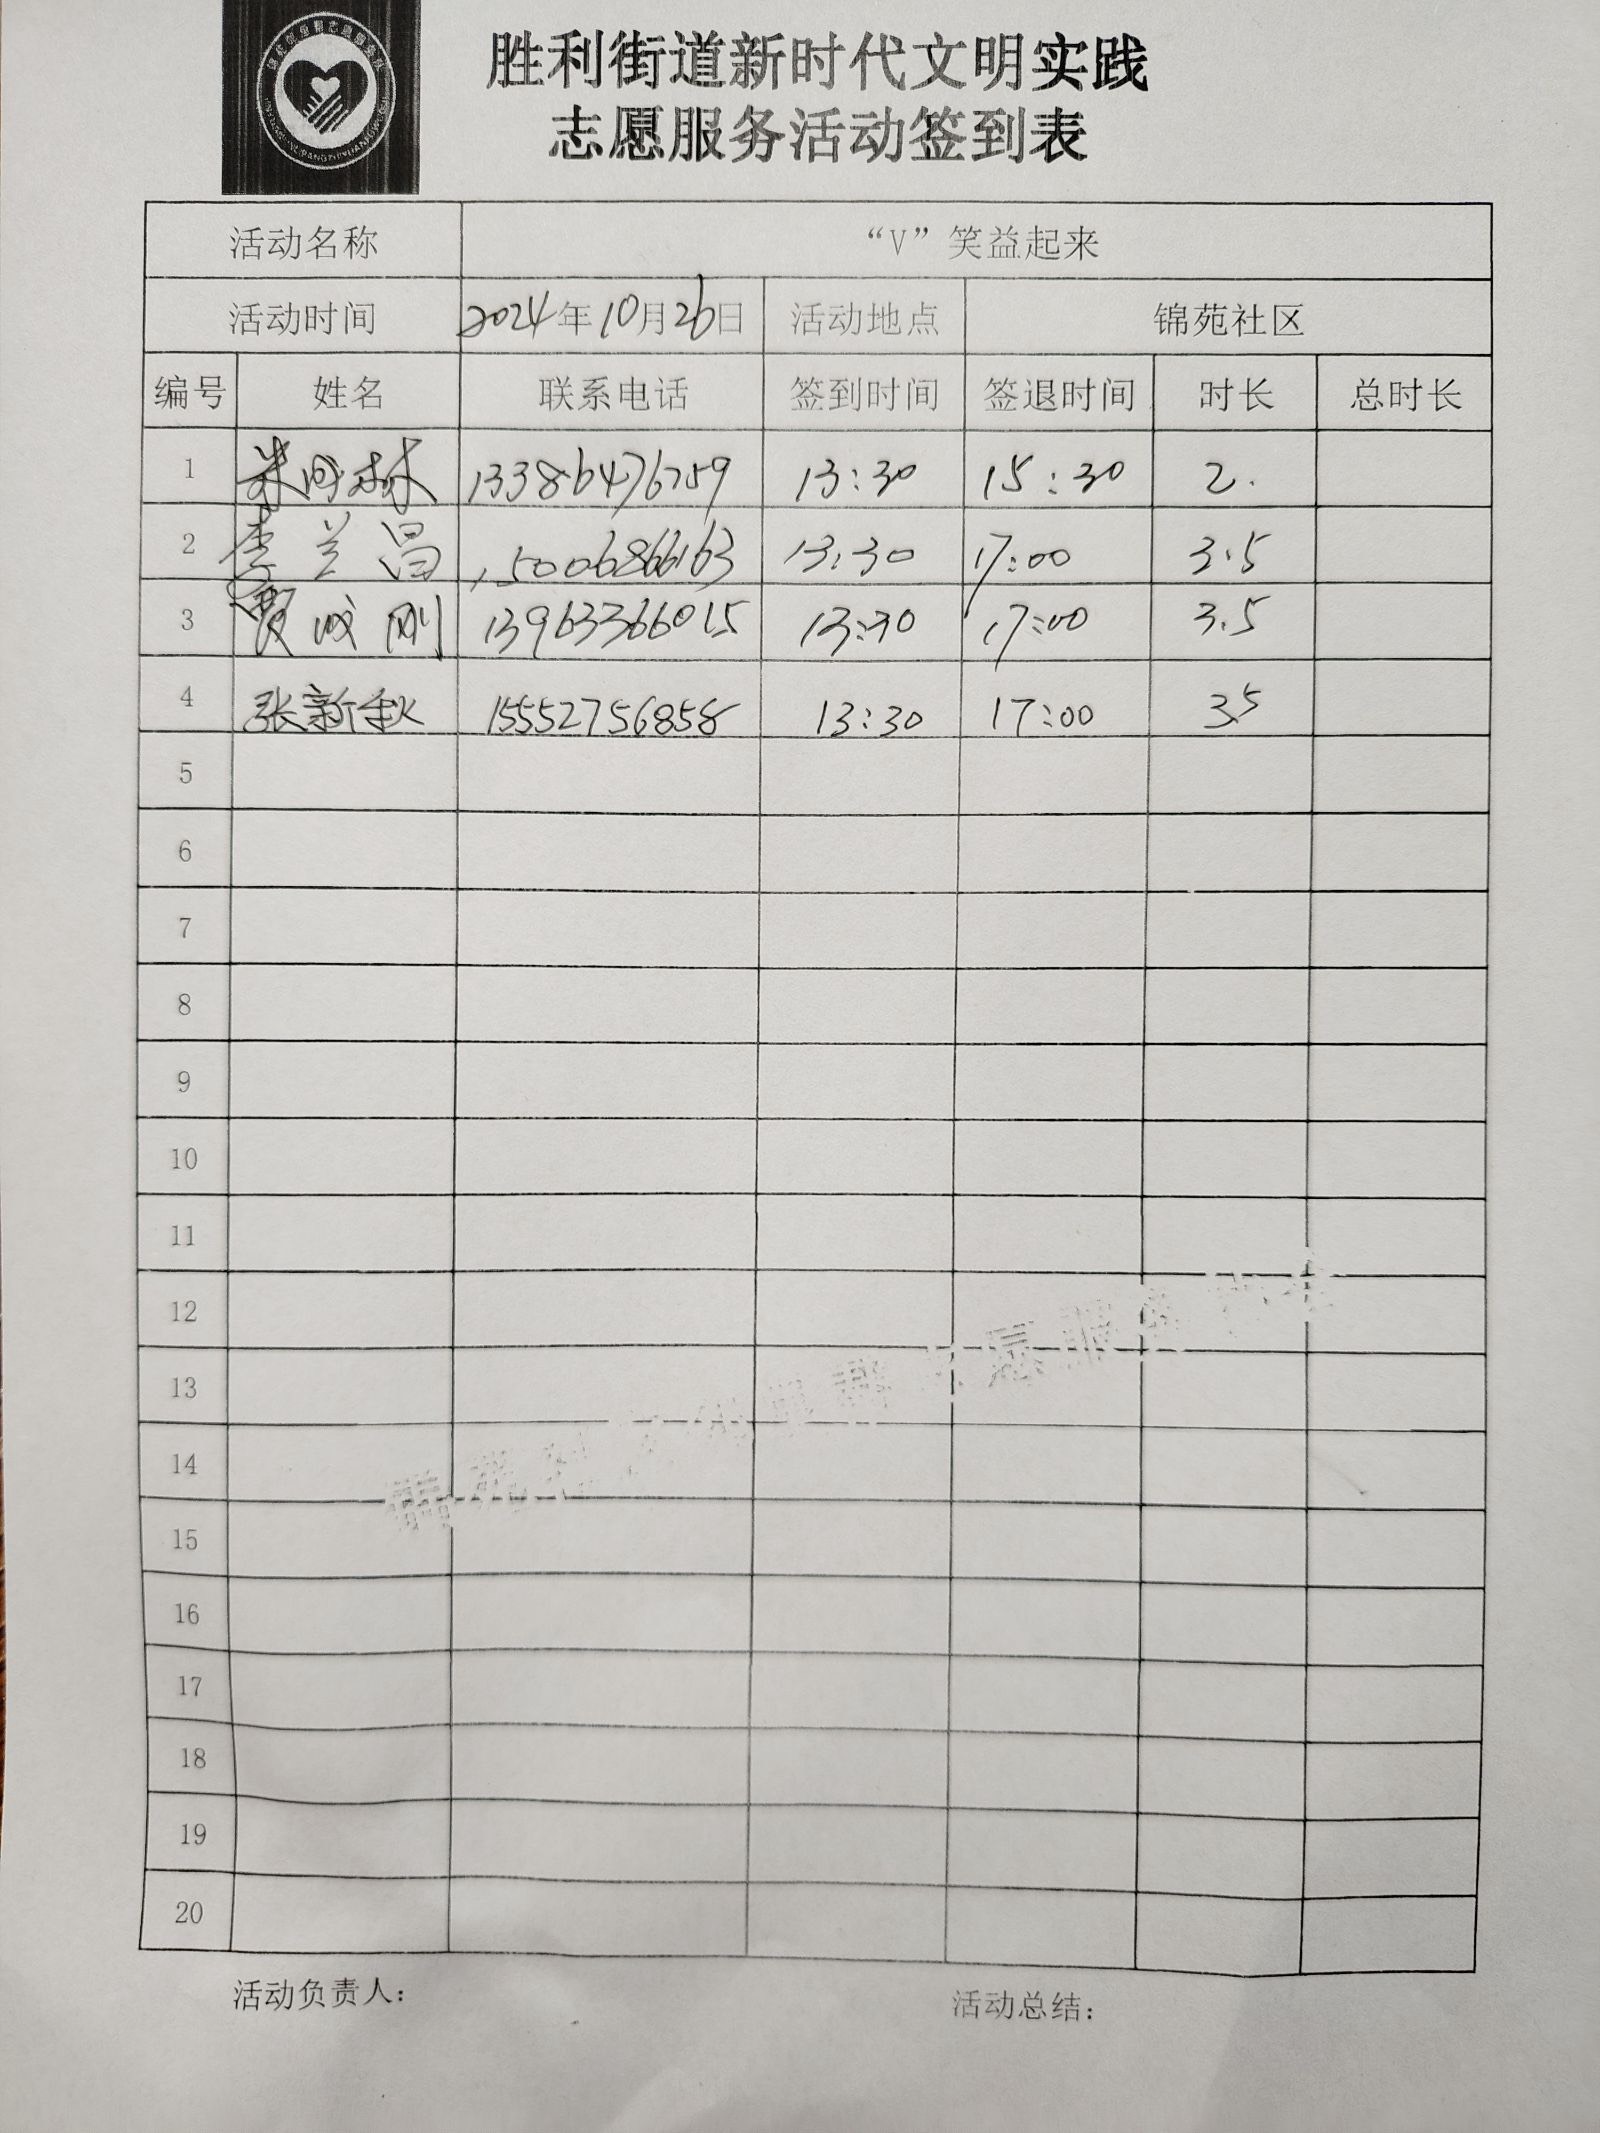 胜利街道新时代文明实践
志愿服务活动签到表
活动名称 “V”笑益起来
活动时间 2024年10月26日 活动地点 锦苑社区
编号 姓名 联系电话 签到时间 签退时间 时长 总时长
1 13386476759 13:30 15:30 2.
2 李兰昌 15006866163 13:30 17:00 3.5
3 贾成刚 13963366015 13:30 17:00 3.5
4 张新秋 15552756858 13:30 17:00 3.5
5
6
7
8
9
10
11
12
13
14
15
16
17
18
19
20
活动负责人: 活动总结: